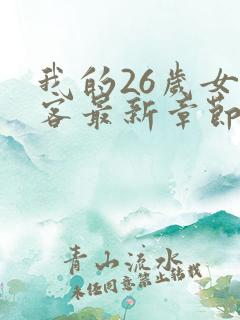 我的26岁女
客最新章节
青山流水
未经同意禁止转载